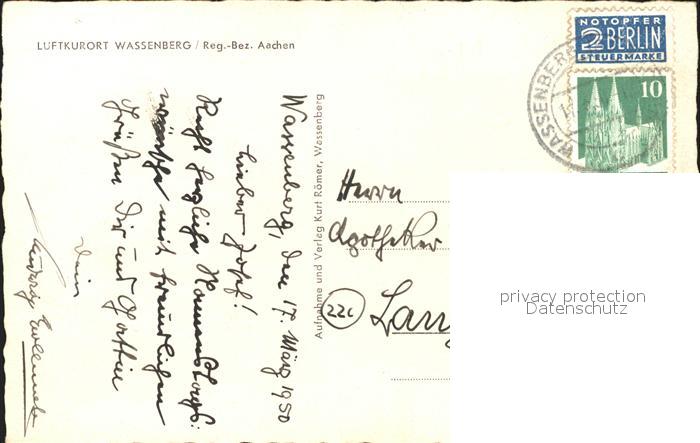 LUFTKURORT WASSENBERG / Reg.-Bez. Aachen
NOTOPFER
2 BERLIN
STEUERMARKE
WASSENBERG
10
Wassenberg, den 17. März 1950
Lieber Josef!
Recht herzliche Namenstags-
wünsche mit freundlichen
Grüßen Dir und Gattin
Dein
Aufnahme und Verlag Kurt Römer, Wassenberg
Herrn
Apotheker
(22c)
privacy protection
Datenschutz